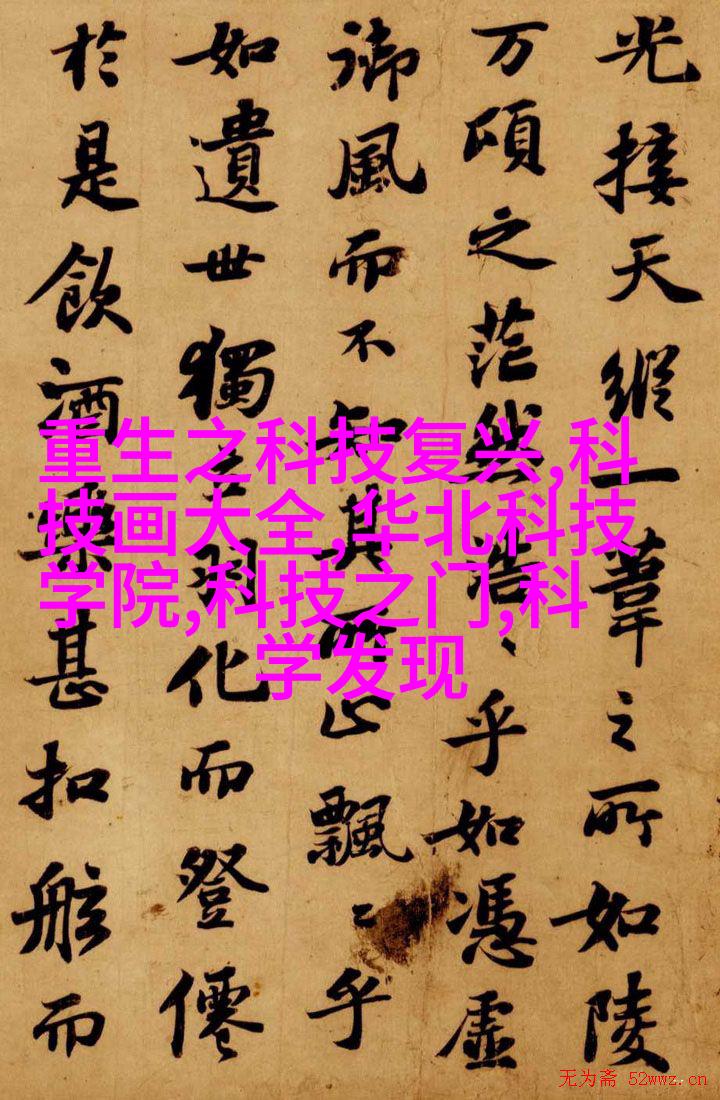 光接天縱一葦之所如陵
万頃之茫然浩〻乎如憑虛
御風而不知其所止飄〻乎
如遺世獨立羽化而登僊
於是飲酒樂甚扣舷而
重生之科技复兴,科
技画大全,华北科技
学院,科技之门,科
学发现
无为斋 52wwz.cn